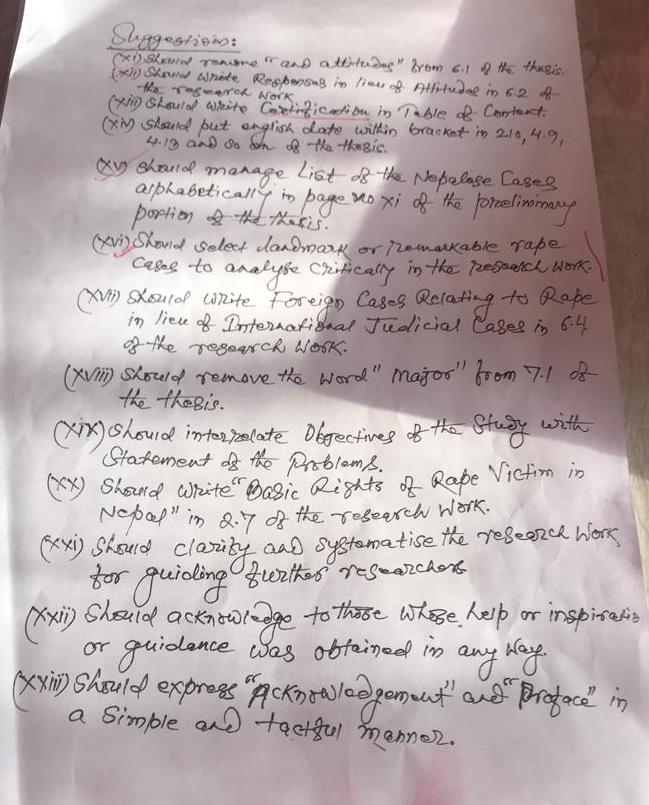 Suggestions:
(xi) Should remove "and attitudes" from 6.1 of the thesis.
(xii) Should write Responses in lieu of Attitudes in 6.2 of
the research work
(xiii) Should write Certification in Table of Content.
(xiv) Should put english date within bracket in 2.10, 4.9,
4.13 and so on of the thesis.
(xv) Should manage List of the Nepalese Cases
alphabetically in page no xi of the preliminary
portion of the thesis.
(xvi) Should select landmark or remarkable rape
cases to analyse critically in the research work.
(xvii) Should write Foreign Cases Relating to Rape
in lieu of International Judicial Cases in 6.4
of the research work.
(xviii) Should remove the word "Major" from 7.1 of
the thesis.
(xix) Should interrelate Objectives of the Study with
Statement of the Problems.
(xx) Should write "Basic Rights of Rape Victim in
Nepal" in 2.7 of the research work.
(xxi) Should clarify and systematise the research work
for guiding further researchers
(xxii) Should acknowledge to those whose help or inspiratio
or guidance was obtained in any way.
(xxiii) Should express "Acknowledgement" and "Preface" in
a simple and tactful manner.